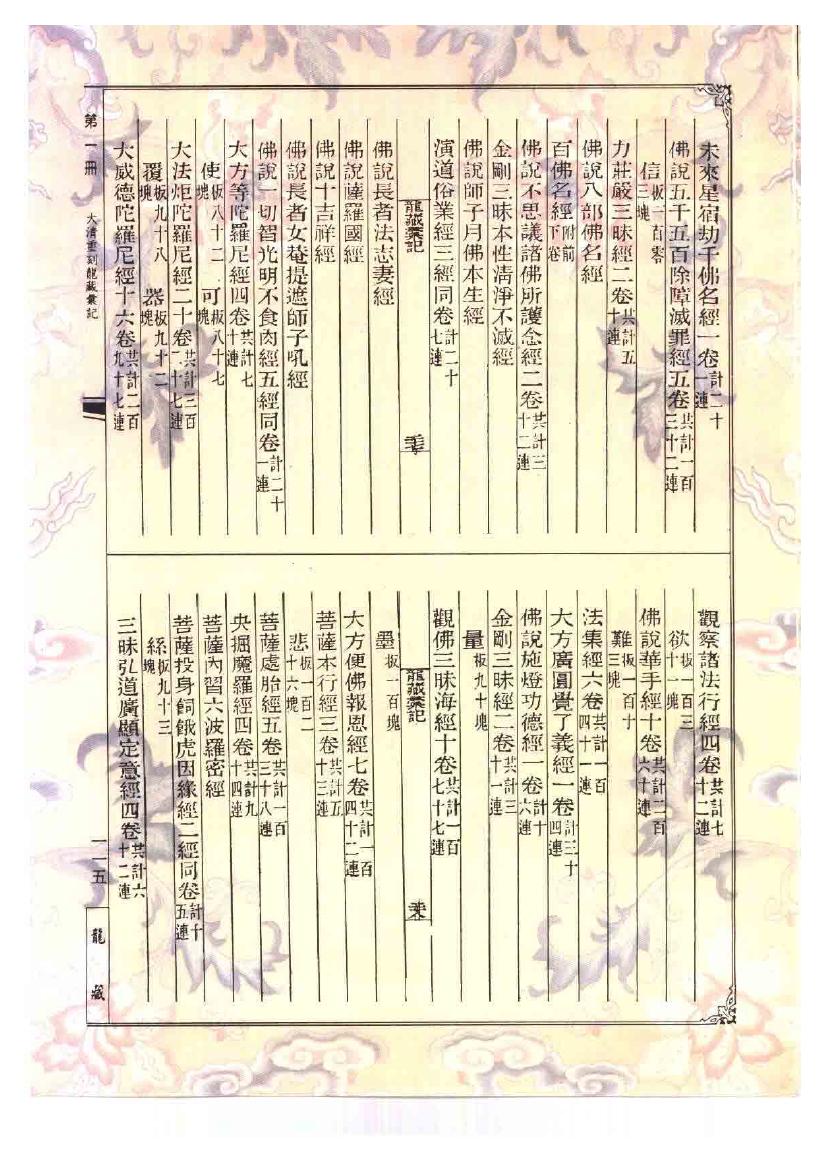 未來星宿劫千佛名經一卷計二十連
佛說五千五百除障滅罪經五卷共計一百三十二連
信板一百零三塊
力莊嚴三昧經二卷共計五十連
佛說八部佛名經
百佛名經附前下卷
佛說不思議諸佛所護念經二卷共計三十二連
金剛三昧本性清淨不滅經
佛說師子月佛本生經
演道俗業經三經同卷計二十七連
龍藏彙記
佛說長者法志妻經
佛說薩羅國經
佛說十吉祥經
佛說長者女菴提遮師子吼經
佛說一切智光明不食肉經五經同卷計二十一連
大方等陀羅尼經四卷共計七十連
使板八十二塊 可板八十七塊
大法炬陀羅尼經二十卷共計三百二十七連
覆板九十八塊 器板九十二塊
大威德陀羅尼經十六卷共計二百九十七連
觀察諸法行經四卷共計七十二連
欲板一百三十一塊
佛說華手經十卷共計二百六十連
難板一百十三塊
法集經六卷共計一百四十一連
大方廣圓覺了義經一卷計三十四連
佛說施燈功德經一卷計十六連
金剛三昧經二卷共計三十一連
量板九十塊
觀佛三昧海經十卷共計一百七十七連
龍藏彙記
墨板一百塊
大方便佛報恩經七卷共計一百四十二連
菩薩本行經三卷共計五十三連
悲板一百二十六塊
菩薩處胎經五卷共計一百三十八連
央掘魔羅經四卷共計九十四連
菩薩內習六波羅密經
菩薩投身飼餓虎因緣經二經同卷計十五連
絲板九十三塊
三昧弘道廣顯定意經四卷共計六十二連
第一冊
大清重刻龍藏彙記
一一五
龍藏